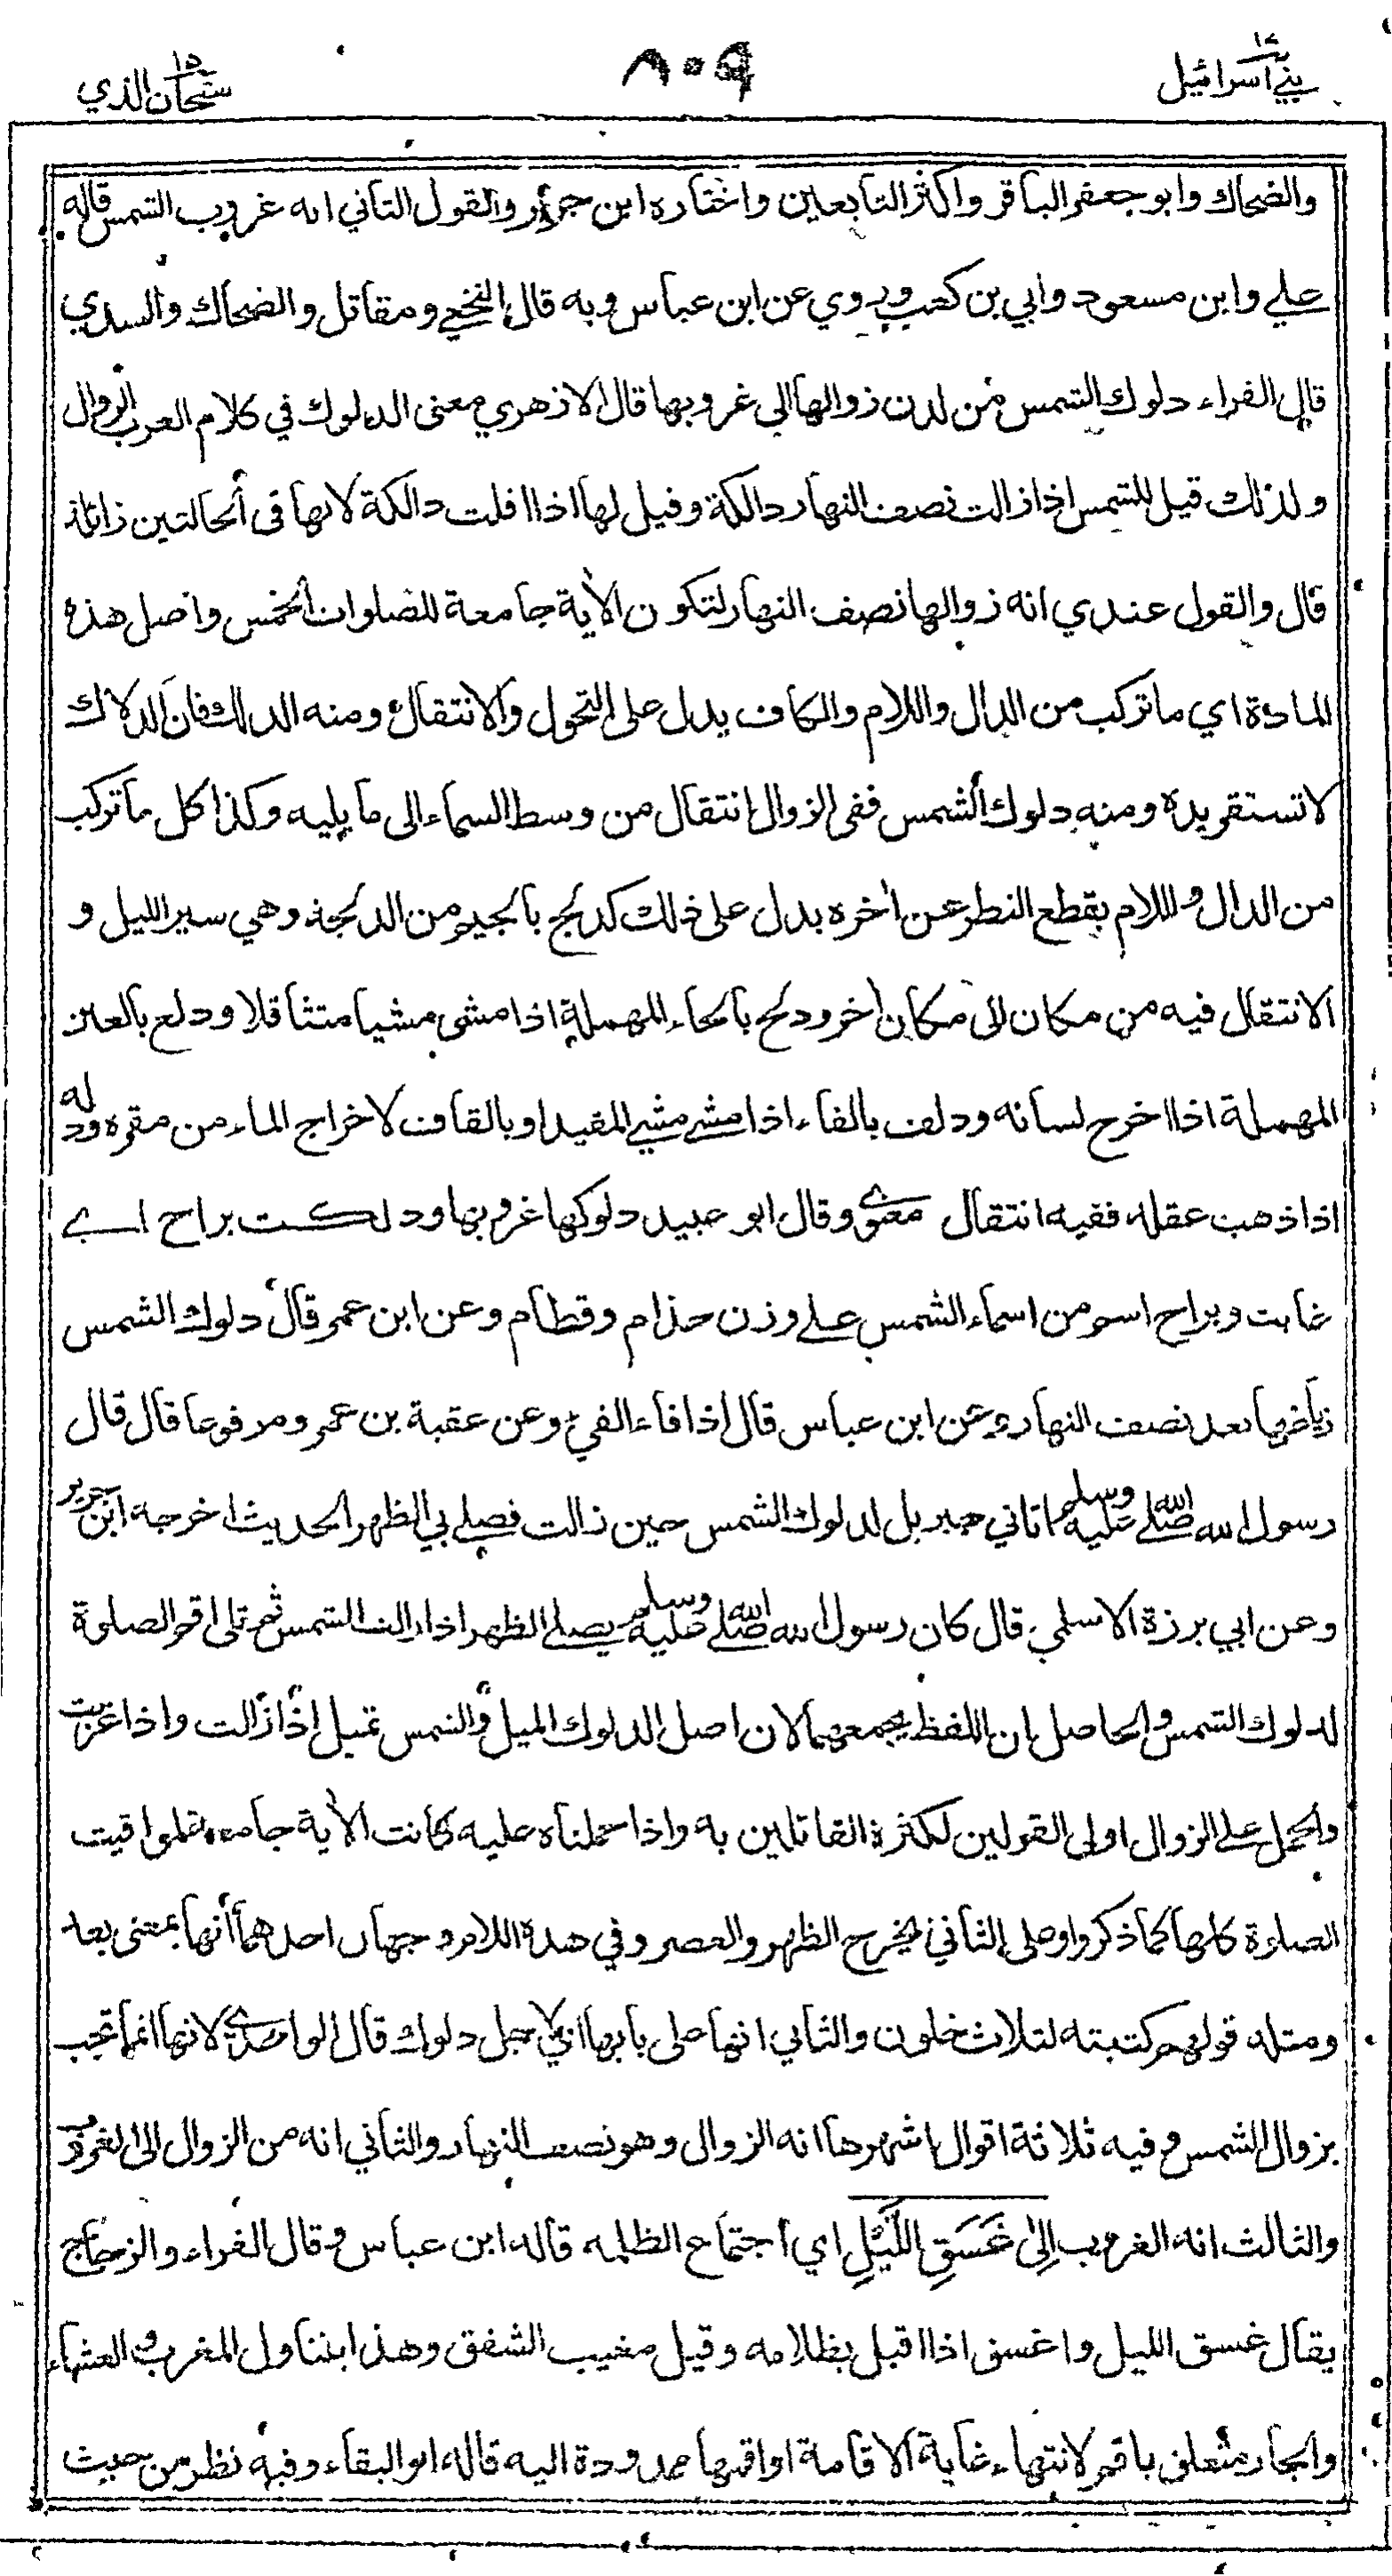 بني اسرائيل ١٧
٨٠٩
سبحان الذي ١٥
والضحاك وابو جعفر الباقر واكثر التابعين واختاره ابن جرير والقول الثاني انه غروب الشمس قاله
علي وابن مسعود وابي بن كعب وروي عن ابن عباس وبه قال النخعي ومقاتل والضحاك والسدي
قال الفراء دلوك الشمس من لدن زوالها الى غروبها قال الازهري معنى الدلوك في كلام العرب الزوال
ولذلك قيل للشمس اذا زالت نصف النهار دالكة وقيل لها اذا افلت دالكة لانها في الحالتين زائلة
قال والقول عندي انه زوالها نصف النهار لتكون الأية جامعة للصلوات الخمس واصل هذه
المادة اي ما تركب من الدال واللام والكاف يدل على التحول والانتقال ومنه الدلك فان الدلاك
لا تستقر يده ومنه دلوك الشمس ففي الزوال انتقال من وسط السماء الى ما يليه وكذا كل ما تركب
من الدال واللام بقطع النظر عن أخره يدل على ذلك كدلج بالجيم من الدلجة وهي سير الليل و
الانتقال فيه من مكان الى مكان أخر ودلح بالحاء المهملة اذا مشى مشيا متثاقلا ودلع بالعين
المهملة اذا اخرج لسانه ودلف بالفاء اذا مشى مشي المقيد او بالقاف لاخراج الماء من مقره ودله
اذا ذهب عقله ففيه انتقال معنوي وقال ابو عبيد دلوكها غروبها ودلكت براح اي
غابت وبراح اسم من اسماء الشمس على وزن حذام وقطام وعن ابن عمر قال دلوك الشمس
زياغها بعد نصف النهار وعن ابن عباس قال اذا فاء الفيء وعن عقبة بن عمرو مرفوعا قال قال
رسول الله صلى الله عليه وسلم اتاني جبريل لدلوك الشمس حين زالت فصلى بي الظهر الحديث اخرجه ابن جرير
وعن ابي برزة الاسلمي قال كان رسول الله صلى الله عليه وسلم يصلي الظهر اذا زالت الشمس ثم تلى اقم الصلوة
لدلوك الشمس والحاصل ان اللفظ يجمعهما لان اصل الدلوك الميل والشمس تميل إذا زالت واذا غربت
والحمل على الزوال اولى القولين لكثرة القائلين به واذا حملناه عليه كانت الأية جامعة لمواقيت
الصلوة كلها كما ذكروا وعلى الثاني يخرج الظهر والعصر وفي هذه اللام وجهان احدهما أنها بمعنى بعد
ومثله قولهم كتبته لثلاث خلون والثاني انها على بابها اي لاجل دلوك قال الواحدي لانها انما تجب
بزوال الشمس وفيه ثلاثة اقوال اشهرها انه الزوال وهو نصف النهار والثاني انه من الزوال الى الغروب
والثالث انه الغروب إِلىٰ غَسَقِ اللَّيْلِ اي اجتماع الظلمه قاله ابن عباس وقال الفراء والزجاج
يقال غسق الليل واغسق اذا اقبل بظلامه وقيل مغيب الشفق وهذا يتناول المغرب والعشاء
والجار متعلق باقم لانتهاء غاية الاقامة او اقمها ممدودة اليه قاله ابو البقاء وفيه نظر من حيث